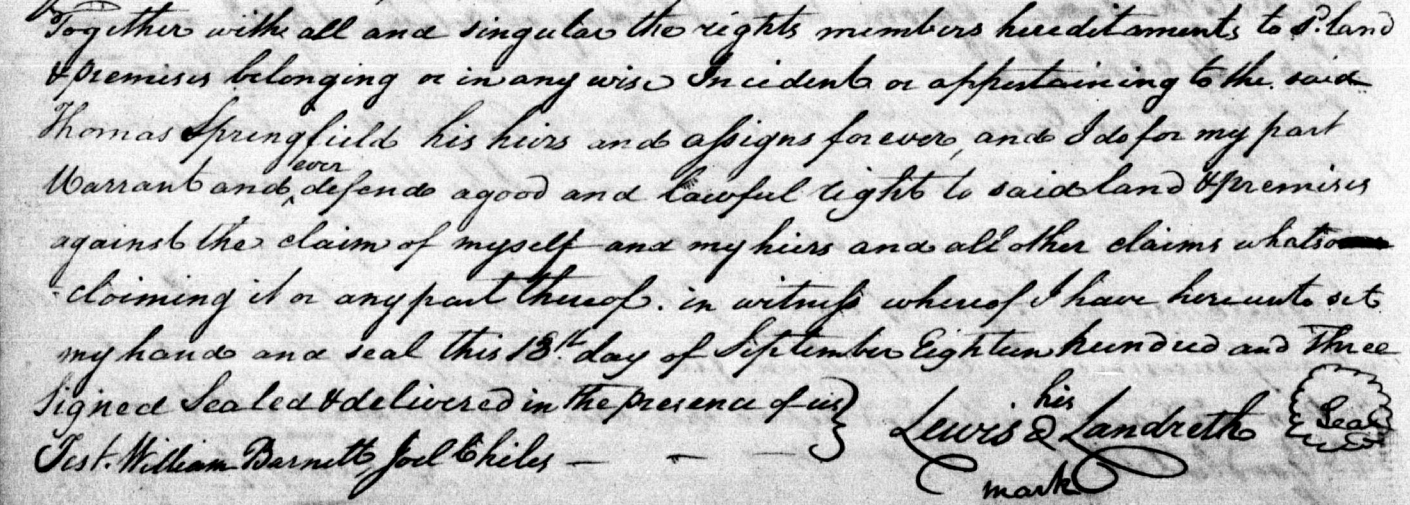 Together withe all and singular the rights members hereditaments to sd. land
& premises belonging or in any wise Incident or appertaining to the said
Thomas Springfield his heirs and assigns forever, and I do for my part
Warrant and ever defend a good and lawful right to said land & premises
against the claim of myself and my heirs and all other claims whatso
claiming it or any part thereof. in witness whereof I have hereunto set
my hand and seal this 13th day of September Eighteen hundred and Three
Signed Sealed & delivered in the presence of us
his
Lewis Landreth Seal
mark
Test. William Barnett Joel Chiles